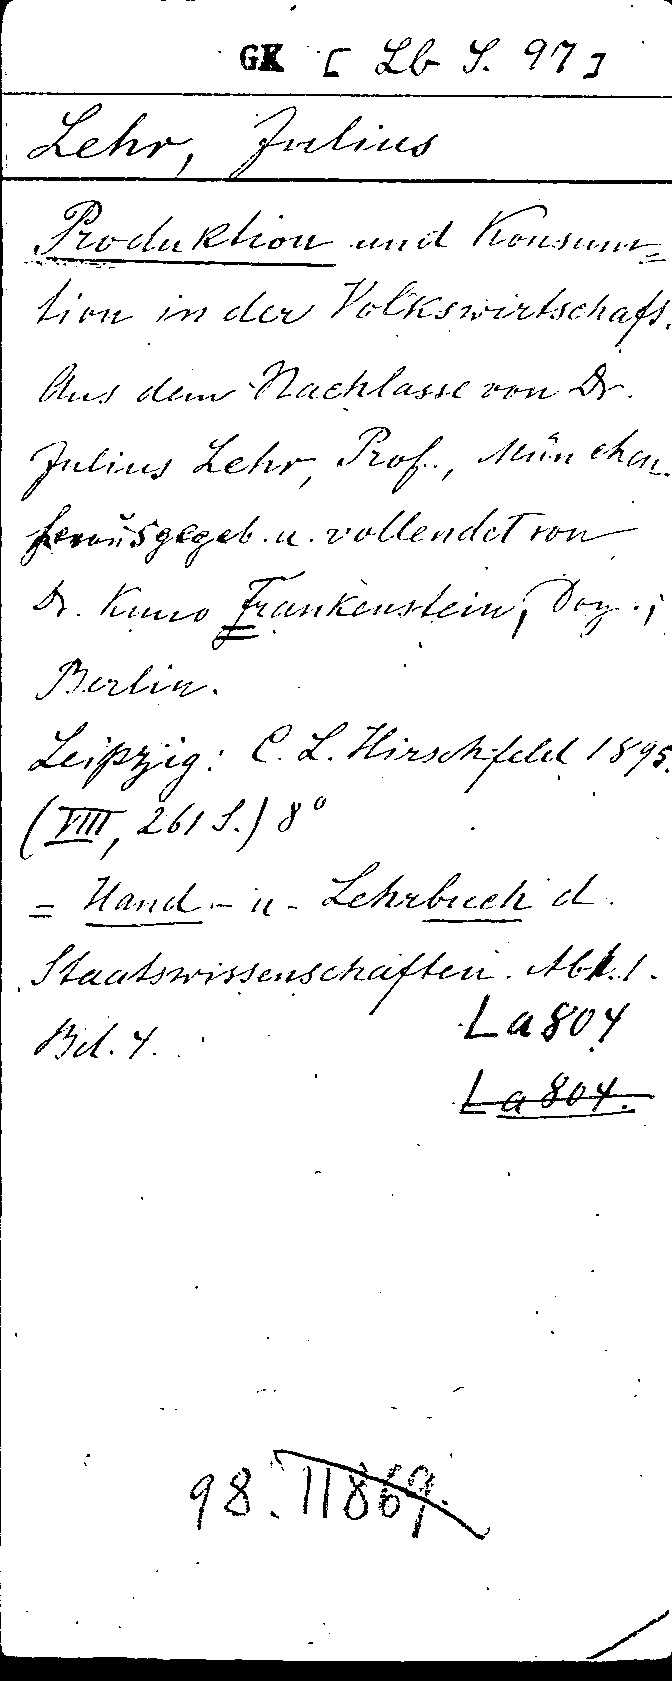 GK [ Lb S. 97 ]
Lehr, Julius
Produktion und Konsum=
tion in der Volkswirtschaft.
Aus dem Nachlasse von Dr.
Julius Lehr, Prof., München.
herausgegeb. u. vollendet von
Dr. Kuno Frankenstein, Doz.,
Berlin.
Leipzig: C. L. Hirschfeld 1895.
(VIII, 261 S.) 8°
= Hand- u. Lehrbuch d.
Staatswissenschaften. Abt. 1.
Bd. 4.
La 804
La 804.
98. 11869.